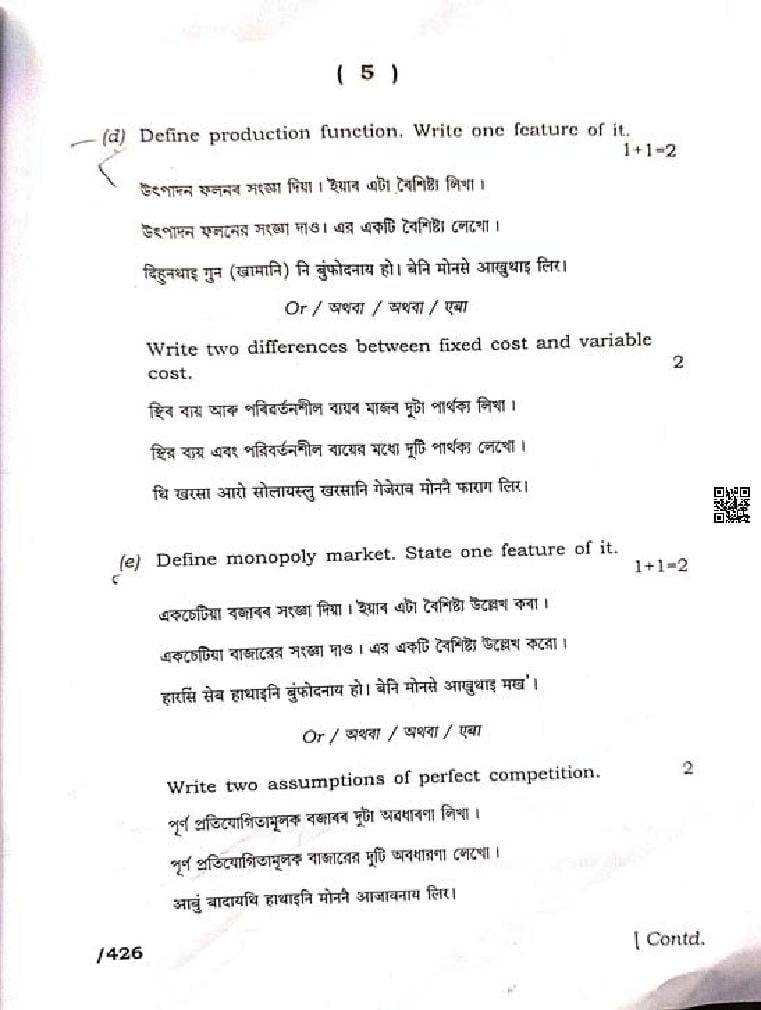 ( 5 )
(d) Define production function. Write one feature of it.
1+1=2
উৎপাদন ফলনৰ সংজ্ঞা দিয়া। ইয়াৰ এটা বৈশিষ্ট্য লিখা।
উৎপাদন ফলনের সংজ্ঞা দাও। এর একটি বৈশিষ্ট্য লেখো।
दिहुनथाइ गुन (खामानि) नि बुंफोदनाय हो। बेनि मोनसे आखुथाइ लिर।
Or / অথবা / অথবা / एबा
Write two differences between fixed cost and variable
cost.
2
স্থিৰ ব্যয় আৰু পৰিৱৰ্তনশীল ব্যয়ৰ মাজৰ দুটা পাৰ্থক্য লিখা।
স্থির ব্যয় এবং পরিবর্তনশীল ব্যয়ের মধ্যে দুটি পার্থক্য লেখো।
थि खरसा आरो सोलायस्लु खरसानि गेजेराव मोननै फाराग लिर।
(e) Define monopoly market. State one feature of it.
1+1=2
একচেটিয়া বজাৰৰ সংজ্ঞা দিয়া। ইয়াৰ এটা বৈশিষ্ট্য উল্লেখ কৰা।
একচেটিয়া বাজারের সংজ্ঞা দাও। এর একটি বৈশিষ্ট্য উল্লেখ করো।
हारसिं सेब हाथाइनि बुंफोदनाय हो। बेनि मोनसे आखुथाइ मख'।
Or / অথবা / অথবা / एबा
Write two assumptions of perfect competition.
2
পূৰ্ণ প্ৰতিযোগিতামূলক বজাৰৰ দুটা অৱধাৰণা লিখা।
পূর্ণ প্রতিযোগিতামূলক বাজারের দুটি অবধারণা লেখো।
आबुं बादायथि हाथाइनि मोननै आजावनाय लिर।
/426
[ Contd.